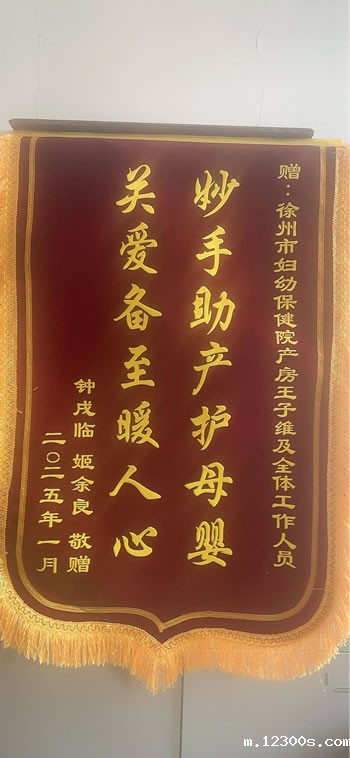 赠：徐州市妇幼保健院产房王子维及全体工作人员
妙手助产护母婴
关爱备至暖人心
钟戌临 姬余良 敬赠
二〇二五年一月
m.12300s.com